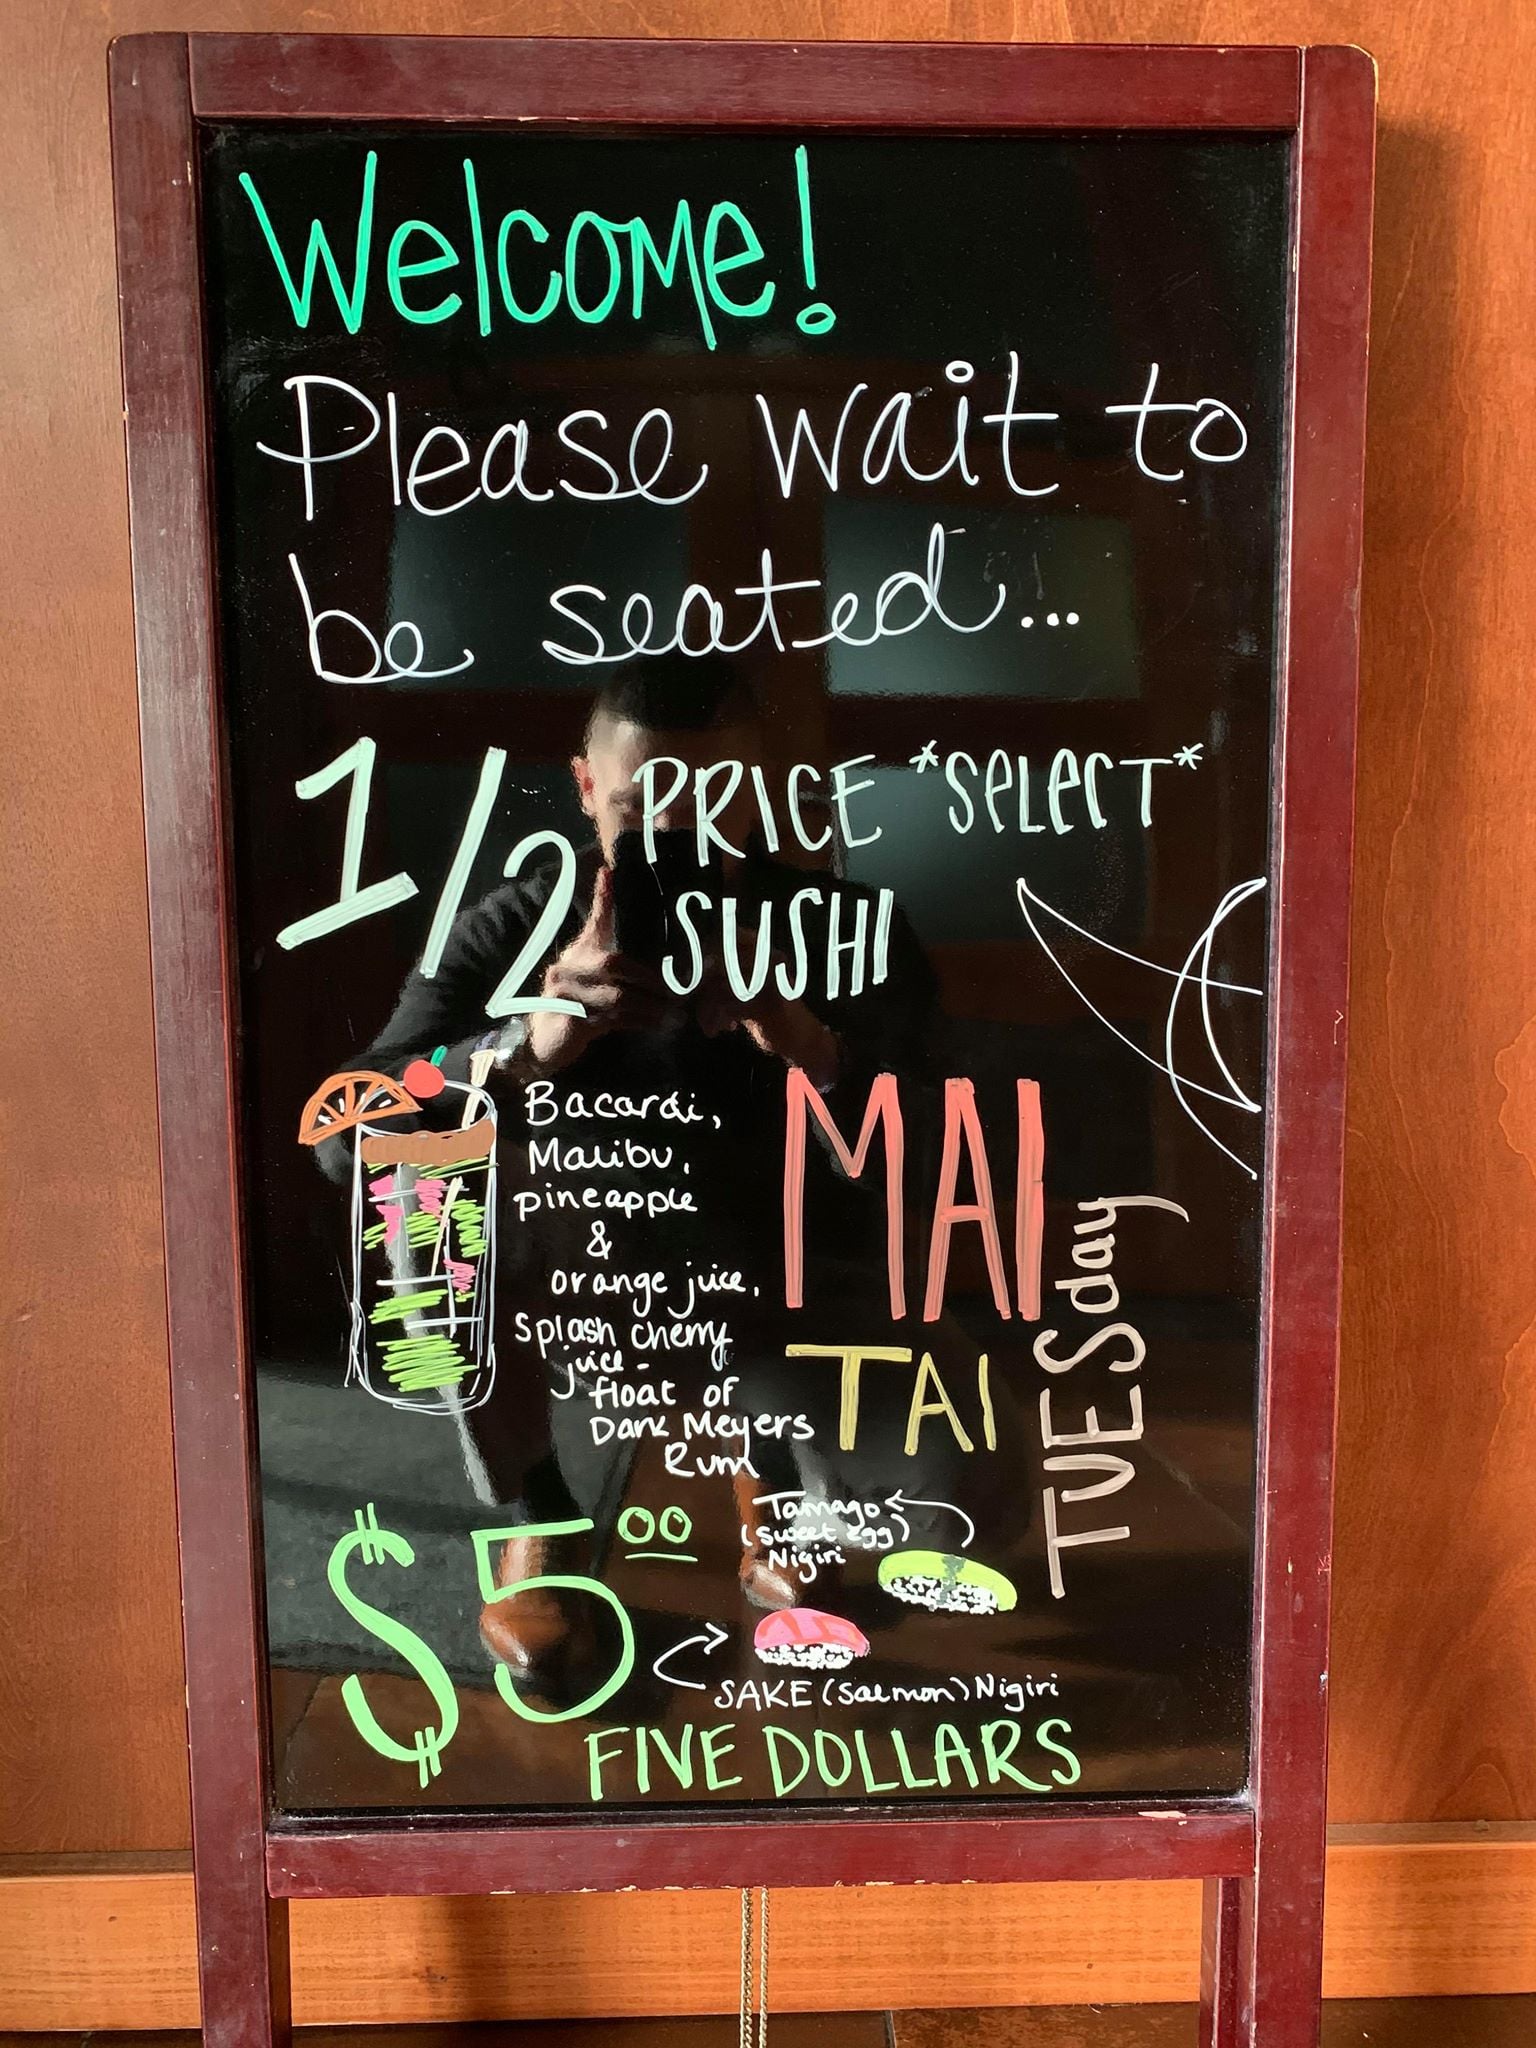 Welcome!
Please wait to
be seated...
1/2 PRICE *SELECT*
SUSHI
Bacardi,
Malibu,
pineapple
&
orange juice,
splash cherry
juice -
float of
Dark Meyers
Rum
MAI
TAI
TUESday
$5.00
Tamago
(sweet egg)
Nigiri
SAKE (salmon) Nigiri
FIVE DOLLARS